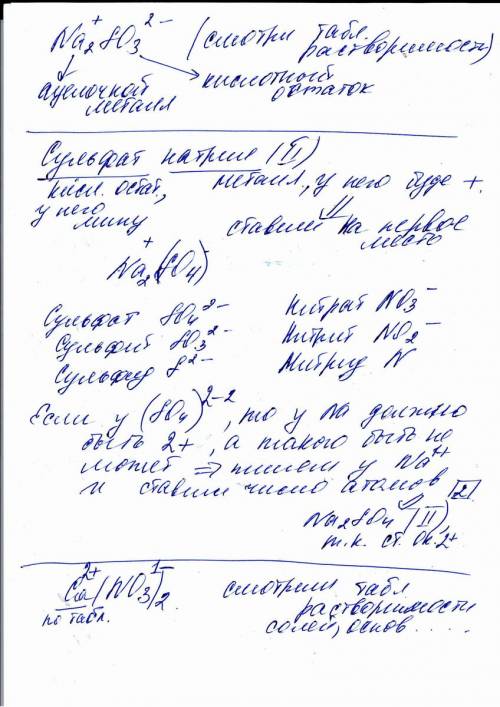 Na₂⁺SO₃²⁻ (смотри табл.
растворимости)
щелочной кислотный
металл остаток
Сульфат натрия (II)
кисл. остат., металл, у него буде +.
у него ⇓
мину ставим на первое
место
Na₂⁺(SO₄)⁻
Сульфат SO₄²⁻ Нитрат NO₃⁻
Сульфит SO₃²⁻ Нитрит NO₂⁻
Сульфид S²⁻ Нитрид N
Если у (SO₄)²⁻, то у Na должно
быть 2+, а такого быть не
может ⇒ пишем у Na⁺
и ставим число атомов 2
Na₂SO₄ (II),
т.к. ст. ок. 2+
Ca²⁺(NO₃)¹⁻₂ смотрим табл
по табл. растворимости
солей, основ.....